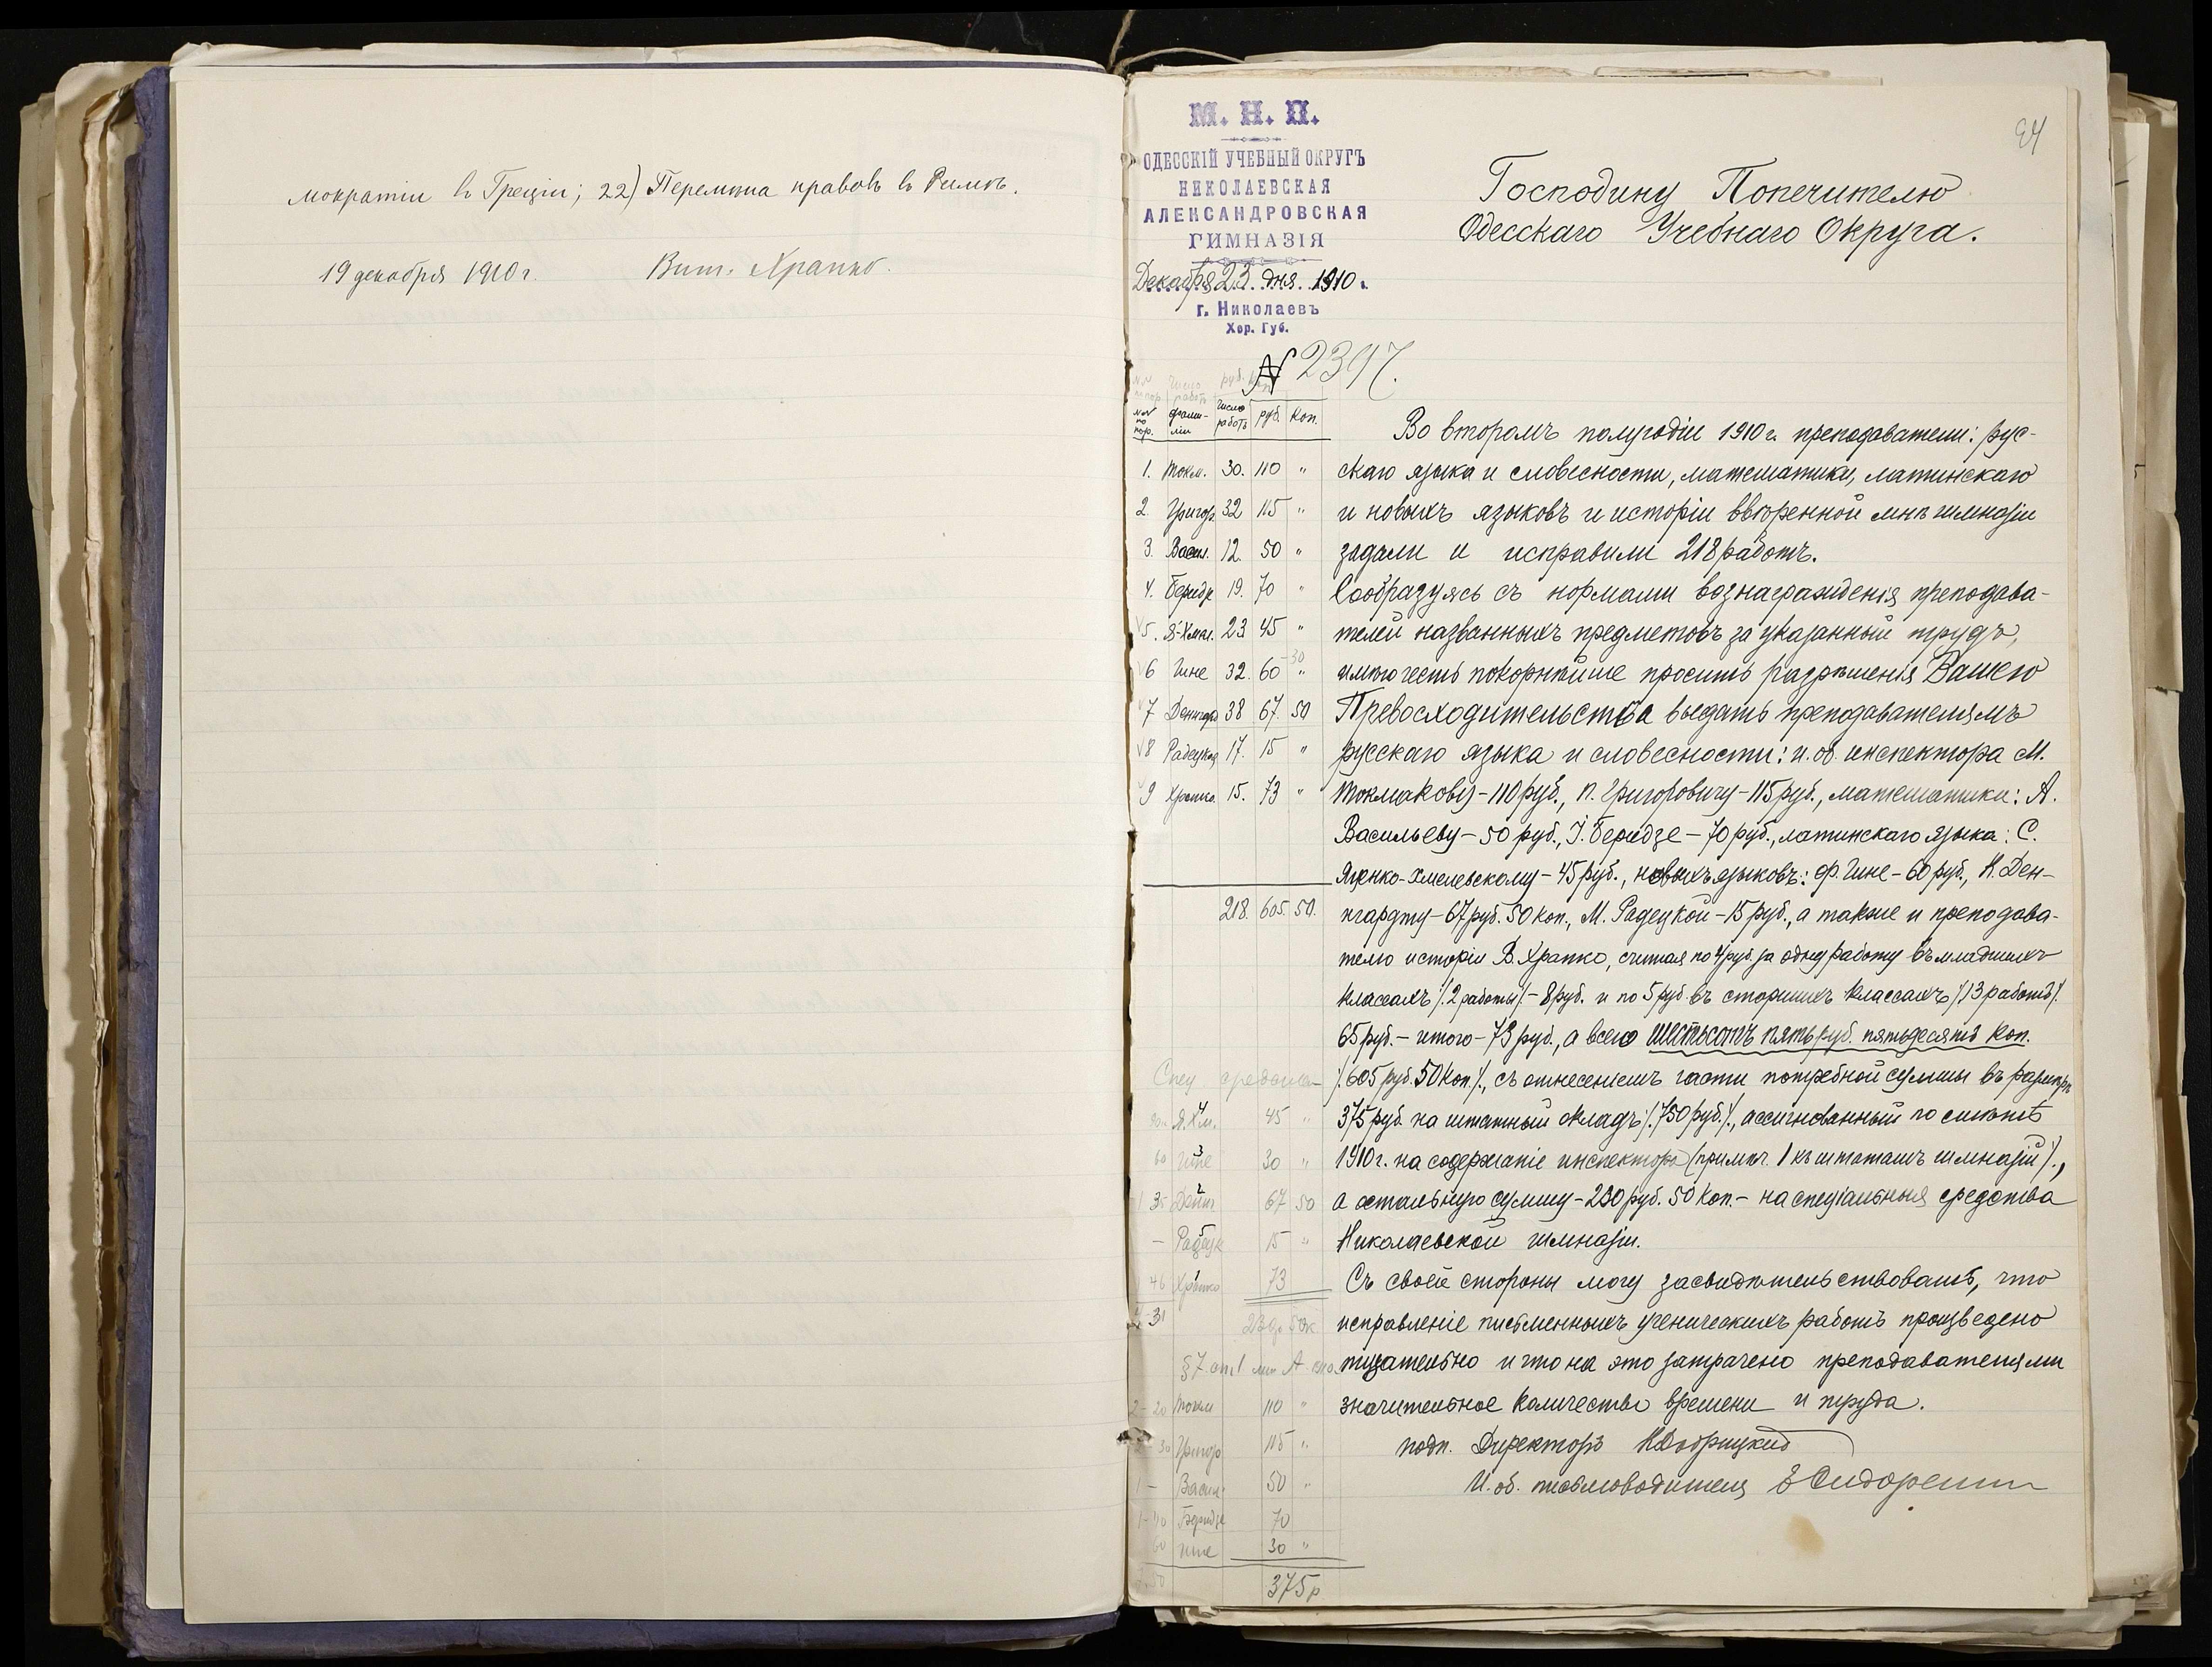 мократіи въ Греціи; 22) Перемѣна нравовъ въ Римѣ.
19 декабря 1910 г. Вит. Храпко.
94
М. Н. П.
ОДЕССКІЙ УЧЕБНЫЙ ОКРУГЪ
НИКОЛАЕВСКАЯ
АЛЕКСАНДРОВСКАЯ
ГИМНАЗІЯ
Декабря 23 дня 1910 г.
г. Николаевъ
Хер. Губ.
№ 2397.
Господину Попечителю
Одесскаго Учебнаго Округа.
№№ по пор. фами-ліи число работъ руб. коп.
1. Токм. 30. 110 "
2. Григор. 32 115 "
3. Васил. 12. 50 "
4. Беридзе 19. 70 "
5. Я-Хмел. 23 45 "
6 Гине 32. 60 "
7 Денгард 38 67 50
8 Радецкая 17. 15 "
9 Храпко. 15. 73 "
218. 605. 50.
Во второмъ полугодіи 1910 г. преподаватели: рус-
скаго языка и словесности, математики, латинскаго
и новыхъ языковъ и исторіи ввѣренной мнѣ гимназіи
задали и исправили 218 работъ.
Сообразуясь съ нормами вознагражденія преподава-
телей названныхъ предметовъ за указанный трудъ,
имѣю честь покорнѣйше просить разрѣшенія Вашего
Превосходительства выдать преподавателямъ
русскаго языка и словесности: и. об. инспектора М.
Токмакову - 110 руб., П. Григоровичу - 115 руб., математики: А.
Васильеву - 50 руб., І. Беридзе - 70 руб., латинскаго языка: С.
Яценко-Хмелевскому - 45 руб., новыхъ языковъ: Ф. Гине - 60 руб., Н. Ден-
нгардту - 67 руб. 50 коп., М. Радецкой - 15 руб., а также и преподава-
телю исторіи В. Храпко, считая по 4 руб. за одну работу въ младшихъ
классахъ /. 2 работы /. - 8 руб. и по 5 руб. въ старшихъ классахъ /. 13 работъ /.
65 руб. - итого - 73 руб., а всего шестьсотъ пять руб. пятьдесятъ коп.
/. 605 руб. 50 коп. /., съ отнесеніемъ части потребной суммы въ размѣрѣ
375 руб. на штатный окладъ /. 750 руб. /., ассигнованный по смѣтѣ
1910 г. на содержаніе инспектора (примѣч. 1 къ штатамъ гимназій) /.,
а остальную сумму - 230 руб. 50 коп. - на спеціальныя средства
Николаевской гимназіи.
Съ своей стороны могу засвидѣтельствовать, что
исправленіе письменныхъ ученическихъ работъ произведено
тщательно и что на это затрачено преподавателями
значительное количество времени и труда.
подп. Директоръ Н Добрицкій
И. об. письмоводителя Е Сидоренко
Спец средства
Я.Хм. 45 "
60 Гине 30 "
1 35 Денн 67 50
- Радецк 15 "
1 46 Храпко 73
4-31 230. 50к
§7 ст 1
2-20 Токм 110 "
30 Григор 115 "
1 - Васил 50 "
1-40 Беридзе 70
60 Гине 30 "
375 р